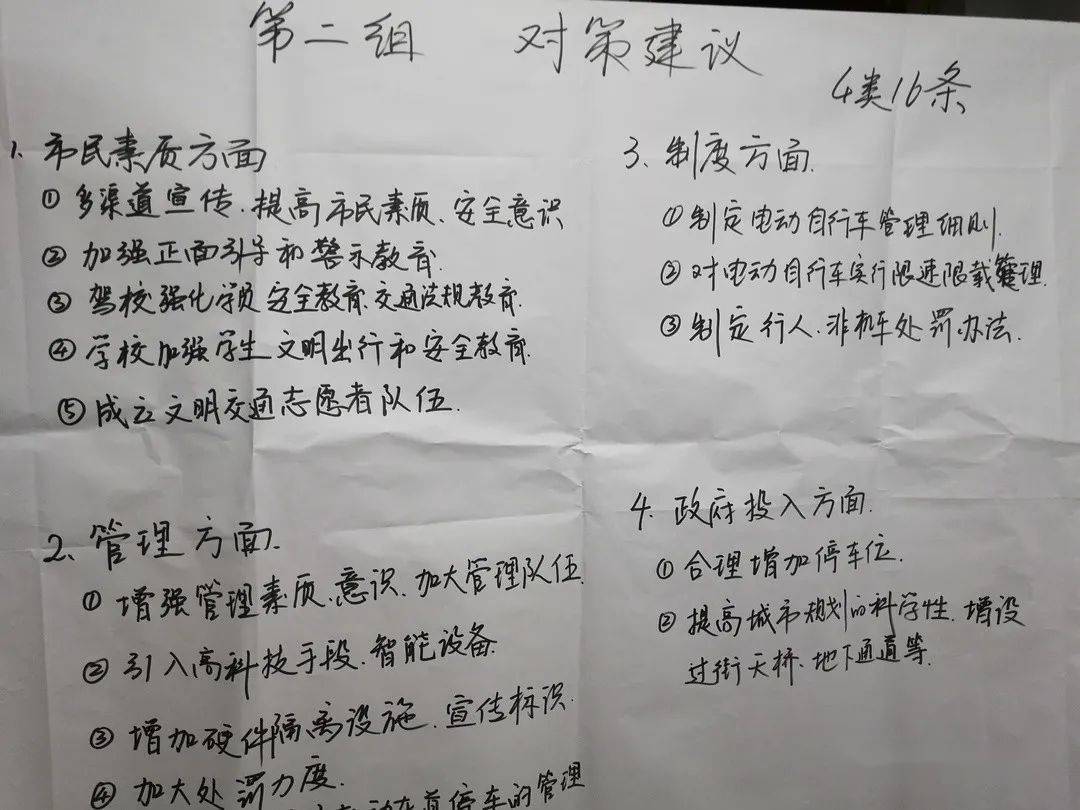 第二组 对策建议
4类16条
1. 市民素质方面
① 多渠道宣传、提高市民素质、安全意识
② 加强正面引导和警示教育.
③ 驾校强化学员安全教育、交通法规教育.
④ 学校加强学生文明出行和安全教育.
⑤ 成立文明交通志愿者队伍.
2. 管理方面.
① 增强管理素质、意识、加大管理队伍.
② 引入高科技手段、智能设备.
③ 增加硬件隔离设施、宣传标识.
④ 加大处罚力度.
停车的管理
3. 制度方面.
① 制定电动自行车管理细则.
② 对电动自行车实行限速限载管理.
③ 制定行人、非机车处罚办法.
4. 政府投入方面.
① 合理增加停车位.
② 提高城市规划的科学性、增设
过街天桥、地下通道等.